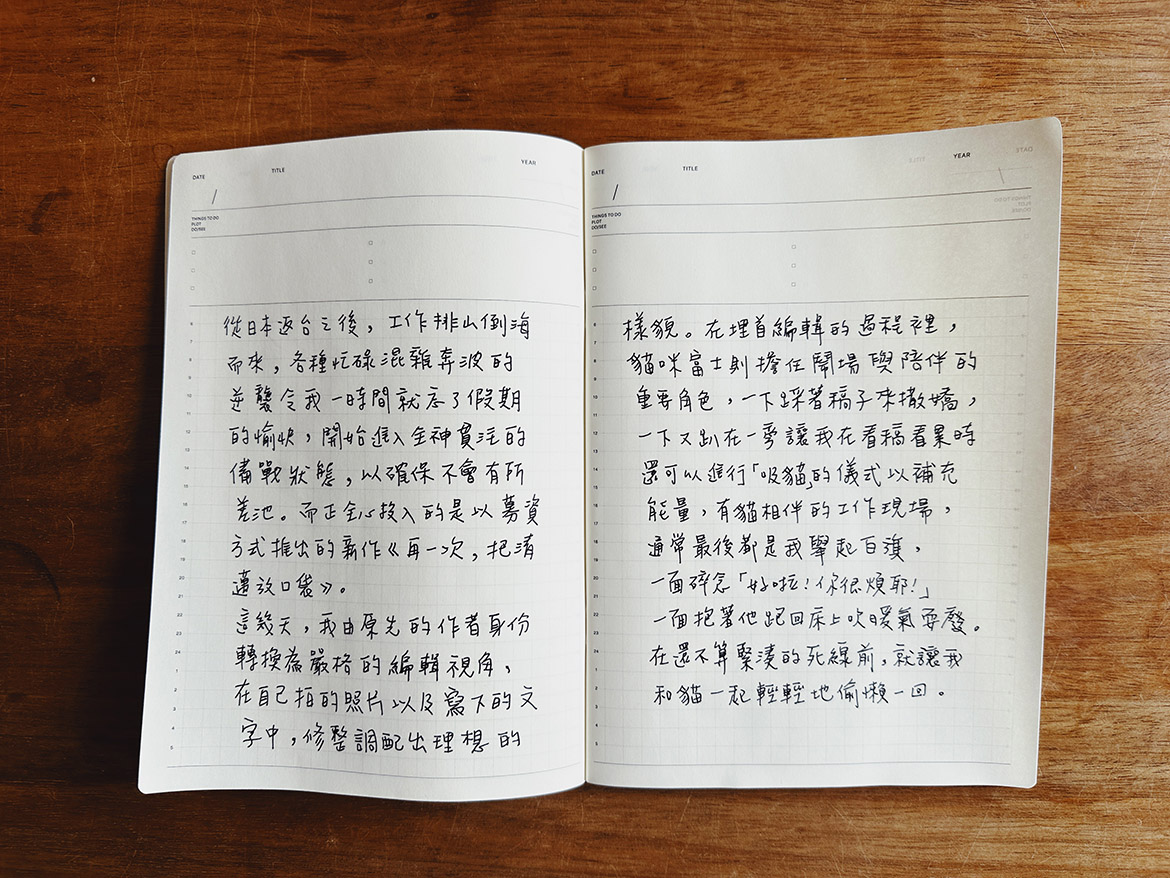 DATE TITLE YEAR
/
THINGS TO DO
PLOT
DO/SEE
從日本返台之後，工作排山倒海
而來，各種忙碌混雜奔波的
逆襲令我一時間就忘了假期
的愉快，開始進入全神貫注的
備戰狀態，以確保不會有所
差池。而正全心投入的是以募資
方式推出的新作《再一次，把清
邁放口袋》。
這幾天，我由原先的作者身份
轉換為嚴格的編輯視角，
在自己拍的照片以及寫下的文
字中，修整調配出理想的
DATE TITLE YEAR
/
THINGS TO DO
PLOT
DO/SEE
樣貌。在埋首編輯的過程裡，
貓咪富士則擔任鬧場與陪伴的
重要角色，一下踩著稿子來撒嬌，
一下又趴在一旁讓我在看稿看累時
還可以進行「吸貓」的儀式以補充
能量，有貓相伴的工作現場，
通常最後都是我舉起白旗，
一面碎念「好啦！你很煩耶！」
一面抱著他跑回床上吹暖氣耍廢。
在還不算緊湊的死線前，就讓我
和貓一起輕輕地偷懶一回。